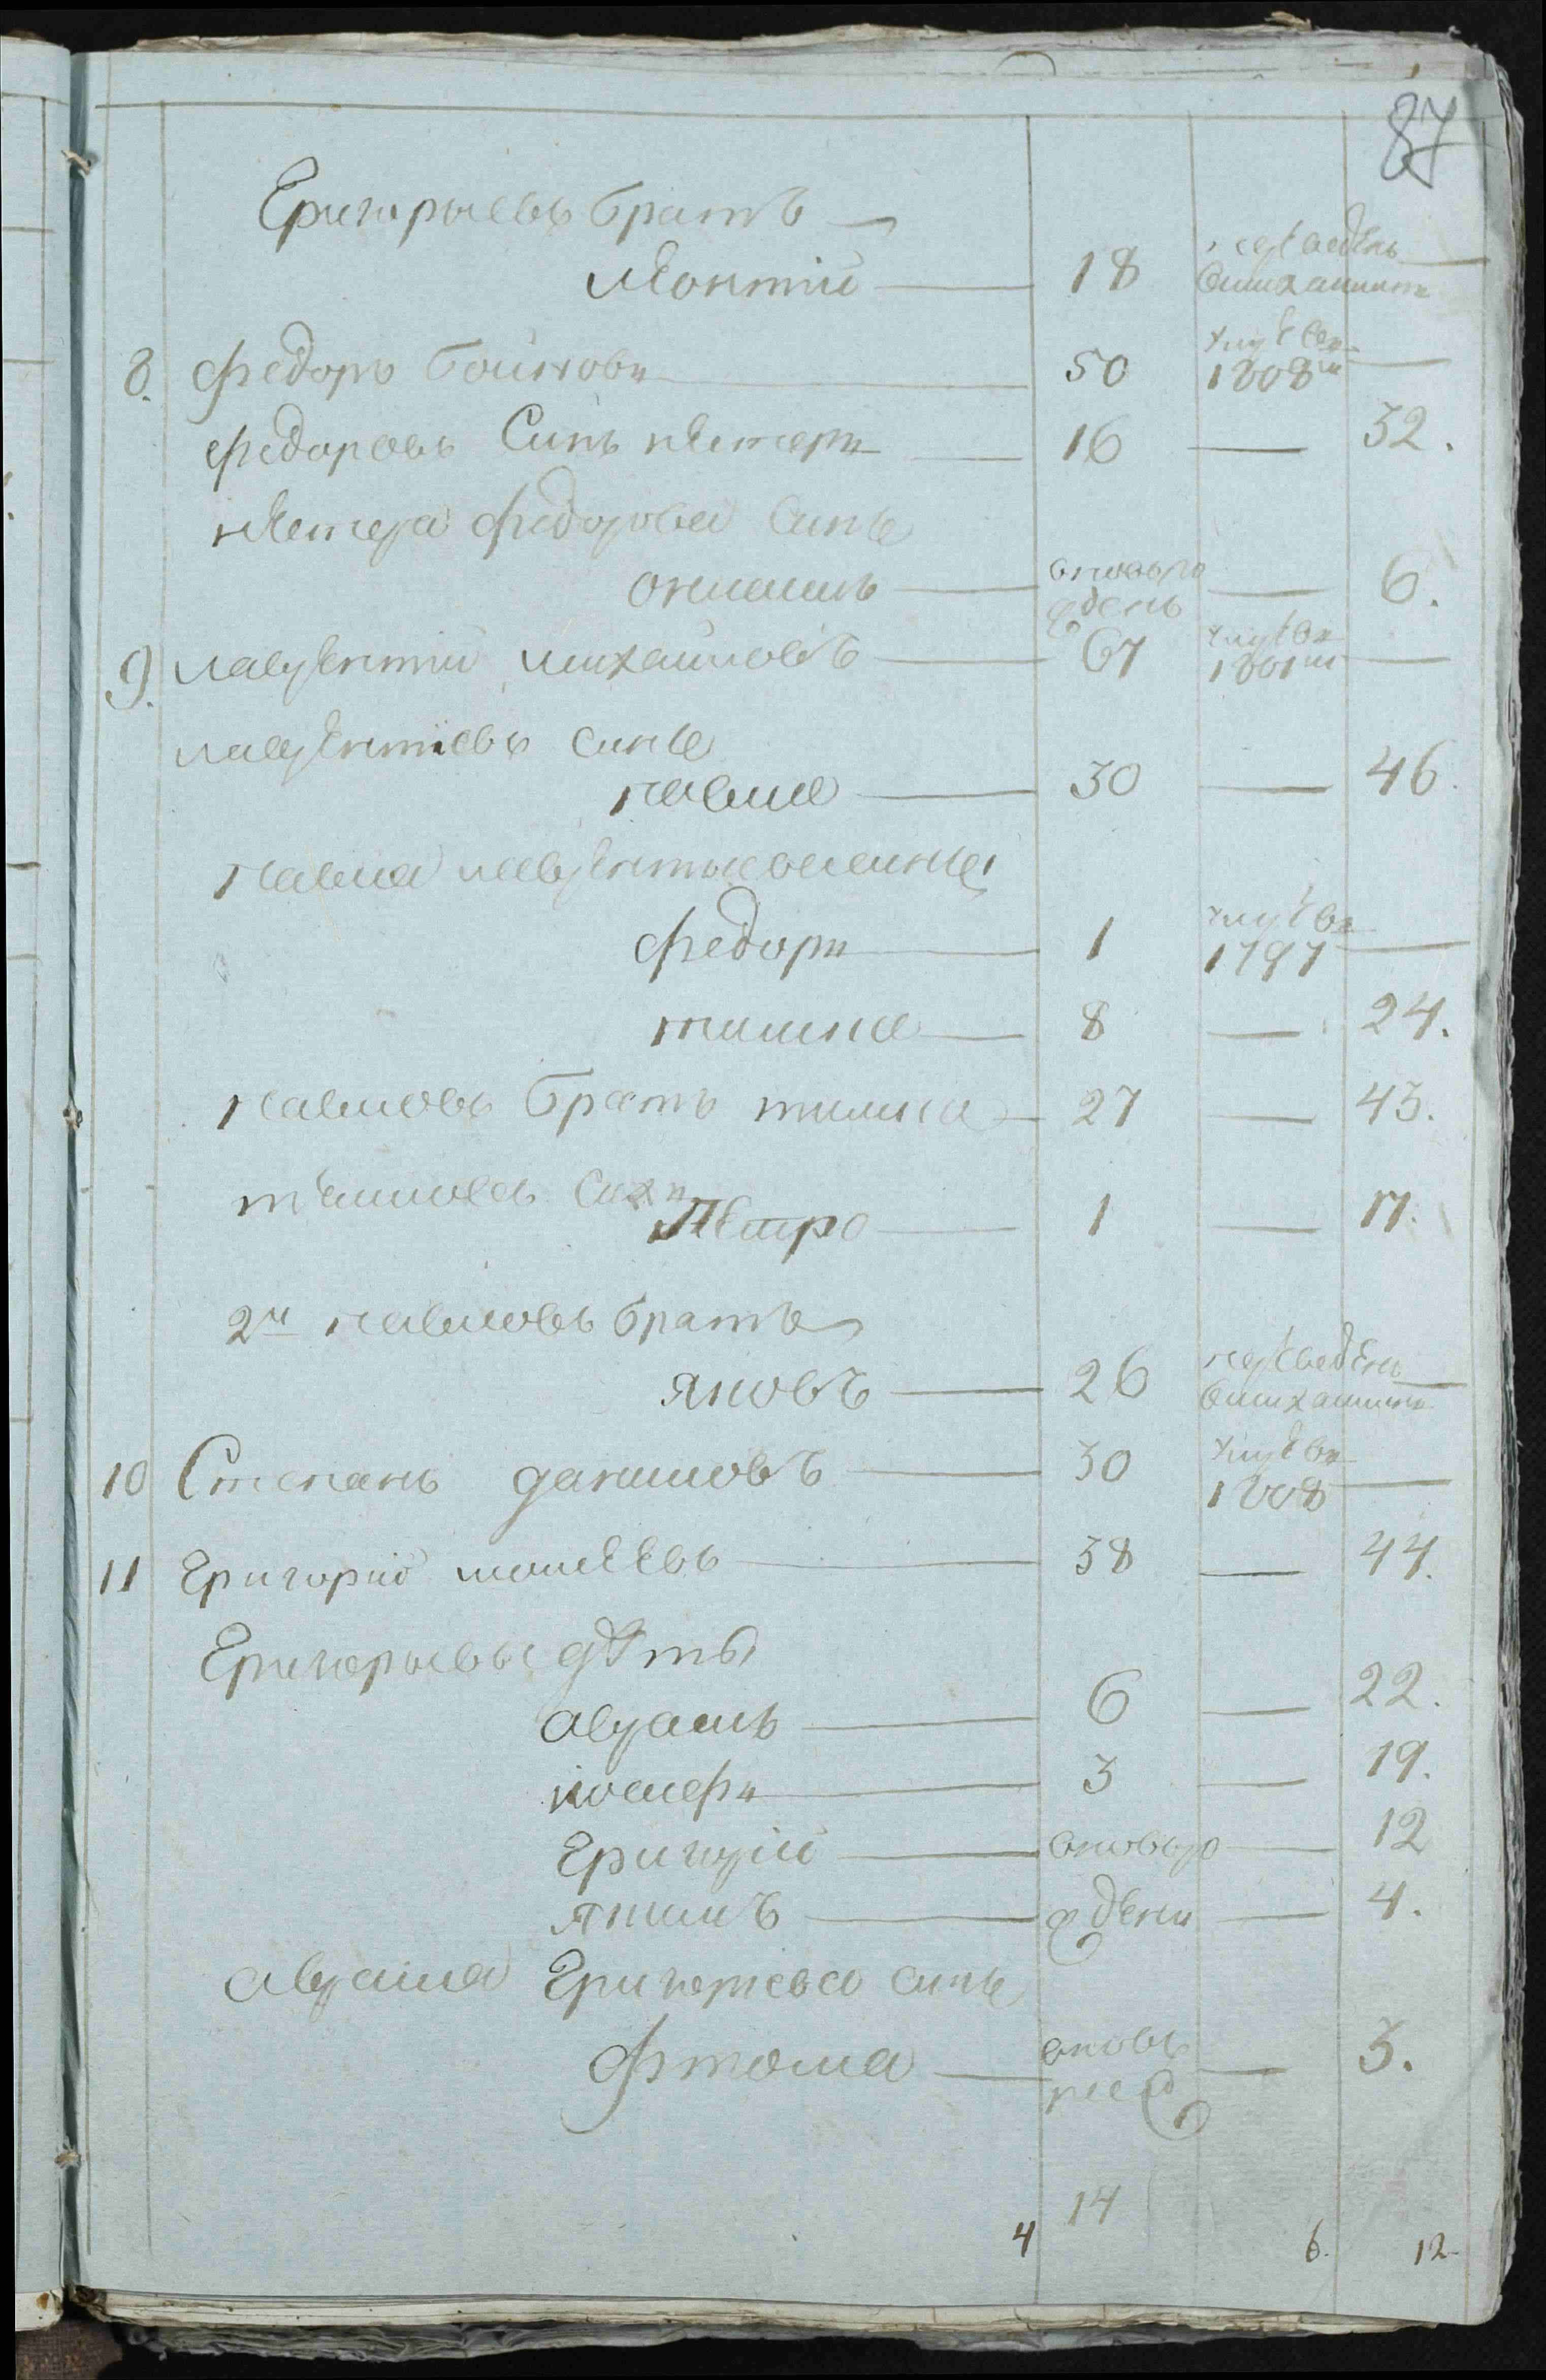 87
Григорьевъ братъ
Леонтий — 18 переведенъ вмихаиловк —
8. Федоръ Боиковъ — 50 умре въ 1808м —
Федоровъ Синъ нестеръ — 16 — 32.
нестера федорова Синъ
онисимъ — вновь рожденъ — 6.
9. лаврентии михаиловъ — 67 умре въ 1801м —
лаврентиевъ синъ
павла — 30 — 46.
павла лаврентьева сины
федоръ — 1 умре въ 1797 —
тишка — 8 — 24.
павловъ братъ тишка — 27 — 43.
тишковъ Синъ
Петро — 1 — 17.
2й павловъ братъ
яковъ — 26 переведенъ вмихаиловк —
10 Степанъ даниловъ — 30 умре въ 1808 —
11 Григорий моисеевъ — 38 — 44.
Григорьевы дѣты
аврамъ — 6 — 22.
иосифъ — 3 — 19.
Григорий — вновь ро — 12
якимъ — жденъ — 4.
аврама Григорьева синъ
Фтома — вновь рож — 3.
14
4 6. 12